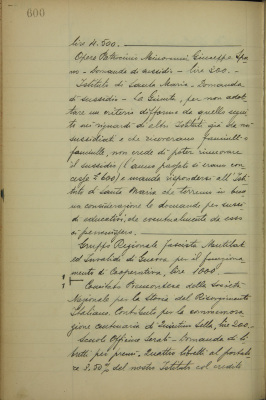 600
lire 4.500.=
Opera Patrocinio Minorenni Giuseppe
- Domanda di sussidio - lire 300.-
Istituto di Santa Maria. Domanda
di sussidio - La Giunta, per non adot-
tare un criterio difforme da quello segui-
to nei riguardi di altri Istituti già da noi
sussidiati e che ricoverano fanciulli e
fanciulle, non crede di poter rinnovare
il sussidio (l'anno passato si erano con-
cesse £ 600) e manda rispondersi all'Isti-
tuto di Santa Maria che terremo in buo-
na considerazione le domande per sussi-
di educativi, che eventualmente da esso
ci pervenissero.
Gruppo Regionale fascista Mutilati
ed Invalidi di Guerra per il funziona-
mento di Cooperativa, lire 1000.-
Comitato Piemontese della Società
Nazionale per la Storia del Risorgimento
Italiano. Contributo per la commemora-
zione centenaria di Quintino Sella, lire 200.-
Scuole Officine Serali - Domanda di li-
bretti per premi. Quattro libretti al portato-
re 3,50% del nostro Istituto col credito